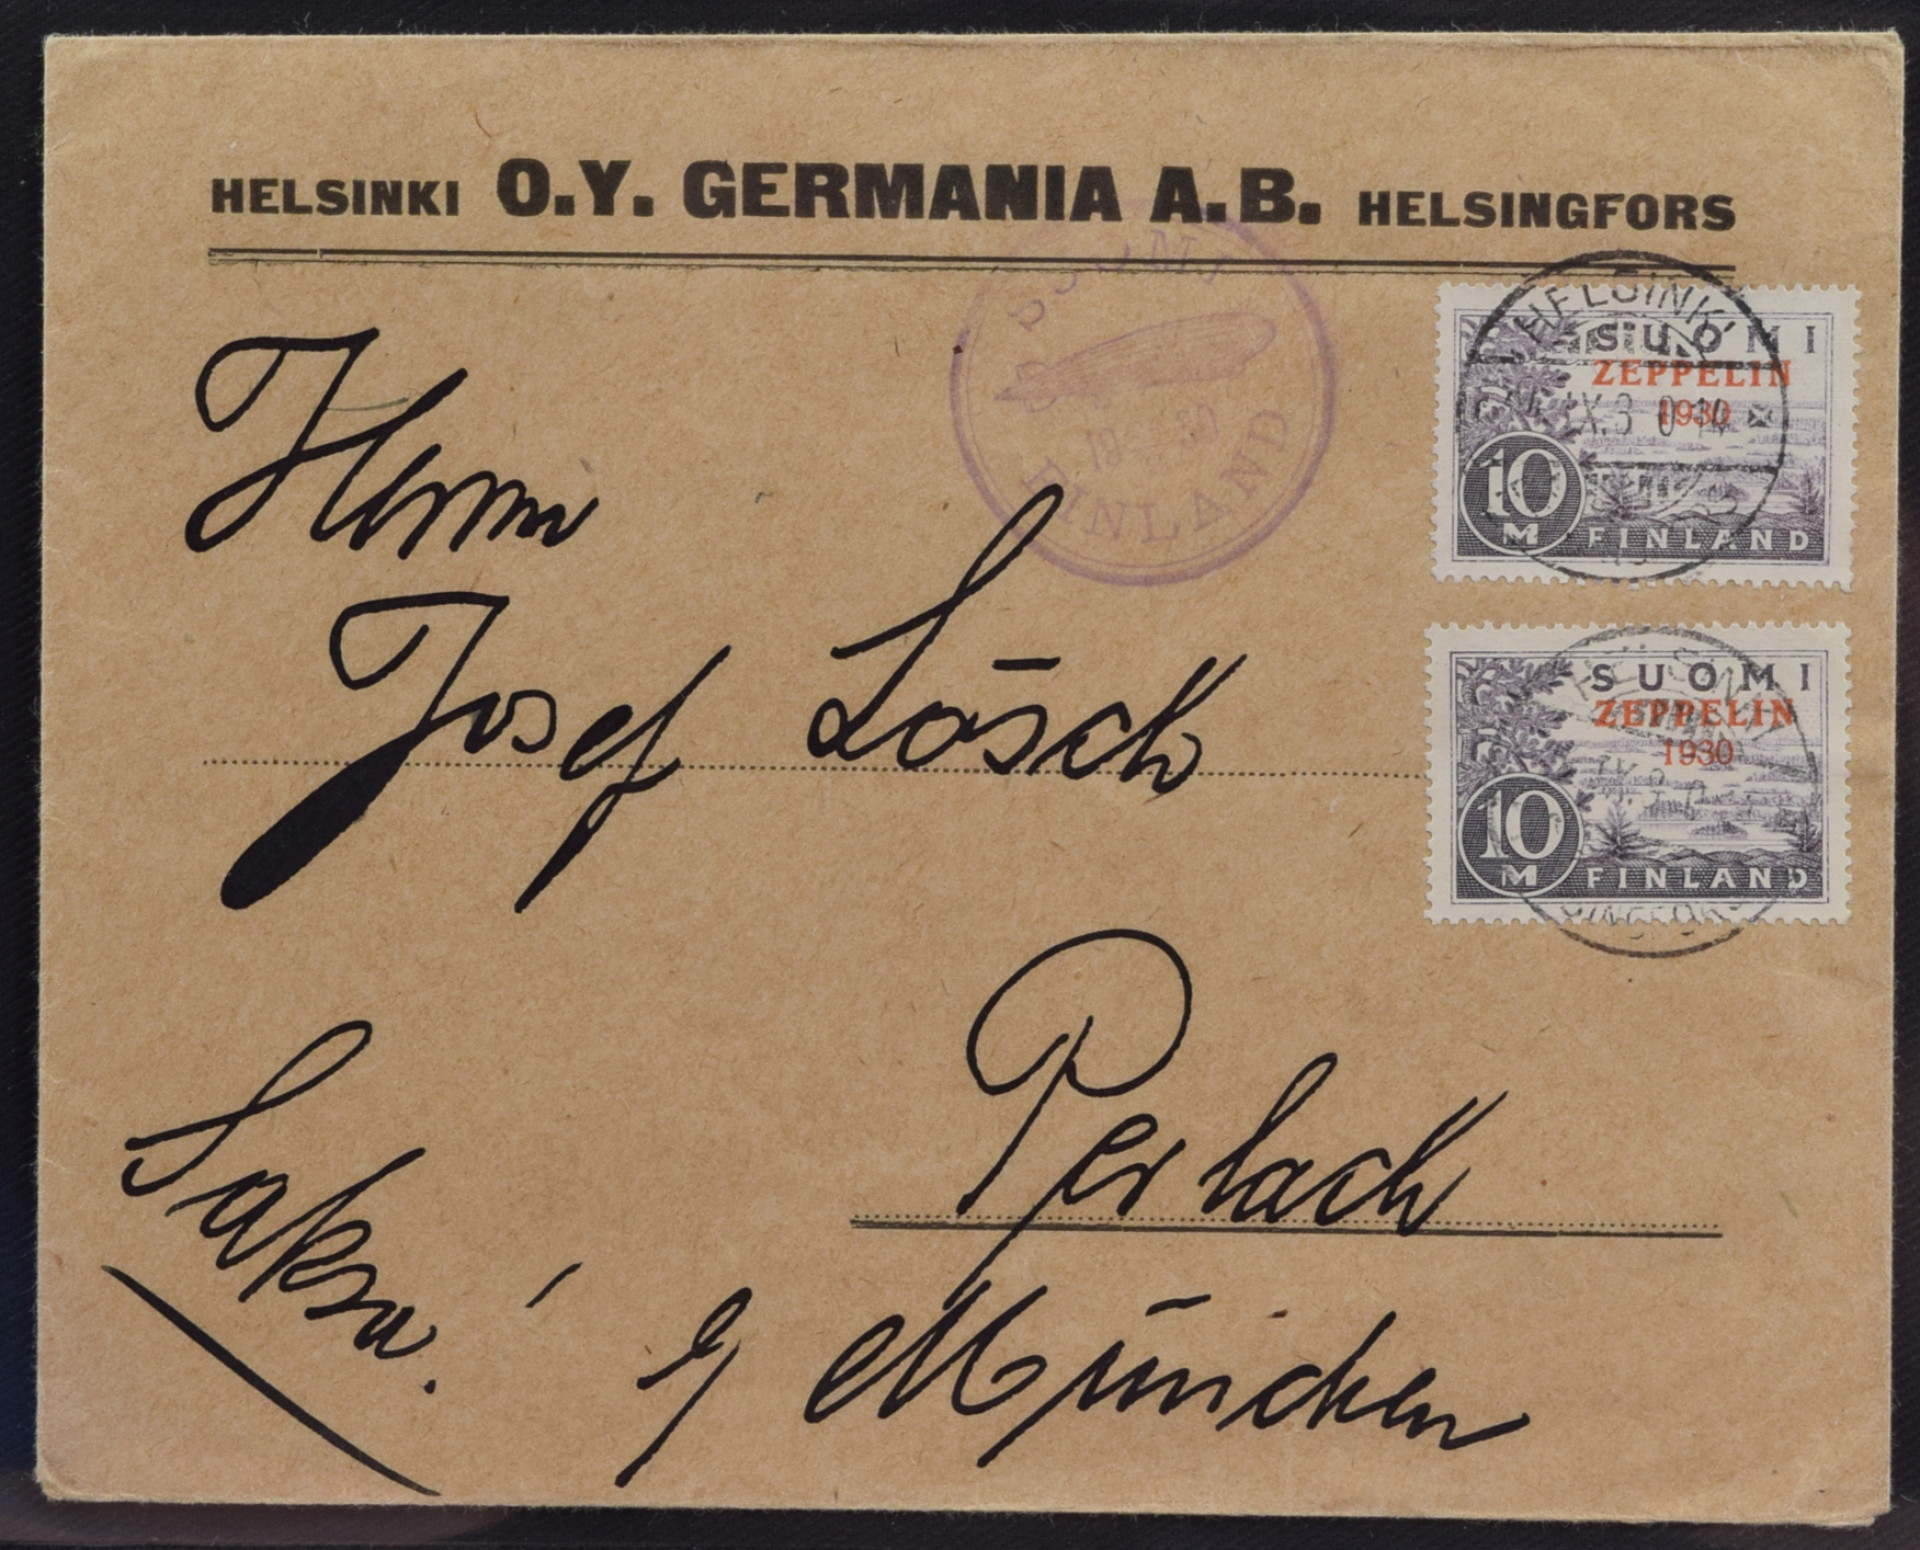 HELSINKI O.Y. GERMANIA A.B. HELSINGFORS
SUOMI
FINLAND
HELSINKI
SUOMI
ZEPPELIN
1930
10
M
FINLAND
SUOMI
ZEPPELIN
1930
10
M
FINLAND
Herrn
Josef Lösch
Perlach
b/ München
Saksa.